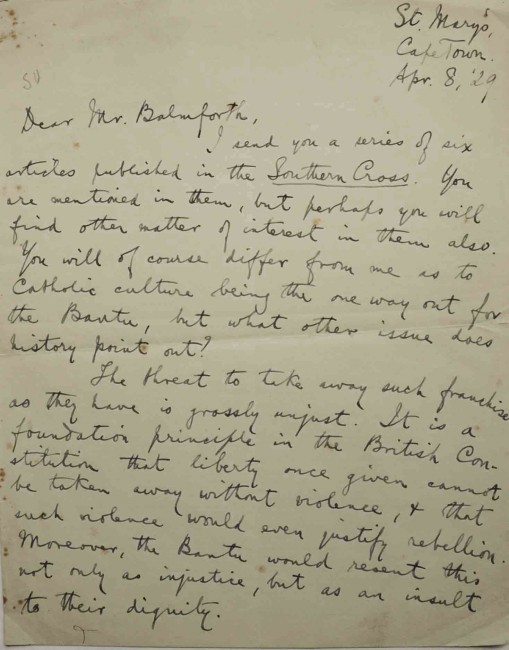 St. Mary's,
Cape Town.
Apr. 8, '29
Dear Mr. Balmforth,
I send you a series of six
articles published in the Southern Cross. You
are mentioned in them, but perhaps you will
find other matter of interest in them also.
You will of course differ from me as to
Catholic culture being the one way out for
the Bantu, but what other issue does
history point out?
The threat to take away such franchise
as they have is grossly unjust. It is a
foundation principle in the British Con-
stitution that liberty once given cannot
be taken away without violence, & that
such violence would even justify rebellion.
Moreover, the Bantu would resent this
not only as injustice, but as an insult
to their dignity.